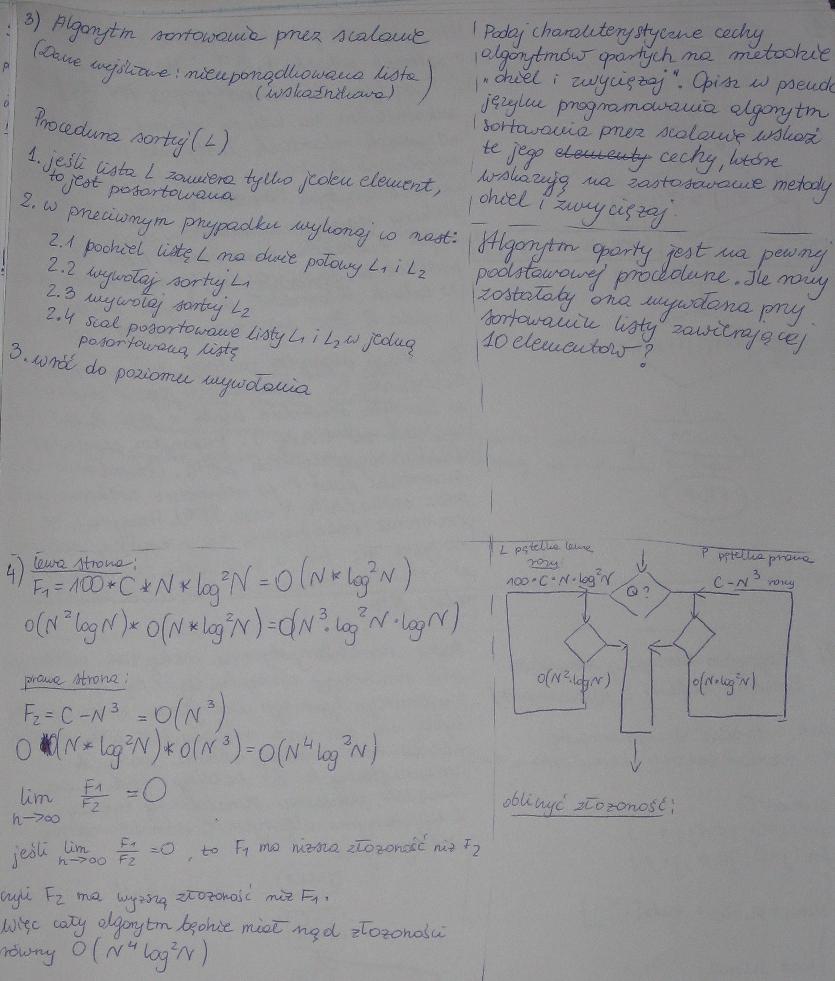 3) Algorytm sortowania przez scalanie
(Dane wejściowe: nieuporządkowana lista
(wskaźnikowa))
Procedura sortuj(L)
1. jeśli lista L zawiera tylko jeden element,
to jest posortowana
2. w przeciwnym przypadku wykonaj co nast:
2.1 podziel listę L na dwie połowy L1 i L2
2.2 wywołaj sortuj L1
2.3 wywołaj sortuj L2
2.4 scal posortowane listy L1 i L2 w jedną
posortowaną listę
3. wróć do poziomu wywołania
Podaj charakterystyczne cechy
algorytmów opartych na metodzie
„dziel i zwyciężaj". Opisz w pseudo
języku programowania algorytm
sortowania przez scalanie wskaż
te jego elementy cechy, które
wskazują na zastosowanie metody
dziel i zwyciężaj.
Algorytm oparty jest na pewnej
podstawowej procedurze. Ile razy
zostałaby ona wywołana przy
sortowaniu listy zawierającej
10 elementów?
4) lewa strona:
F1 = 100 * C * N * log²N = O(N * log²N)
O(N² log N) * O(N * log²N) = O(N³ · log²N · log N)
prawa strona:
F2 = C - N³ = O(N³)
O (N * log²N) * O(N³) = O(N⁴ log²N)
lim n->∞ F1/F2 = O
jeśli lim n->∞ F1/F2 = O, to F1 ma niższą złożoność niż F2
czyli F2 ma wyższą złożoność niż F1.
Więc cały algorytm będzie miał rząd złożoności
równy O(N⁴ log²N)
L pętelka lewa
razy
100 · C · N · log²N
Q?
P pętelka prawa
C - N³ razy
O(N² · log N)
O(N · log²N)
obliczyć złożoność: